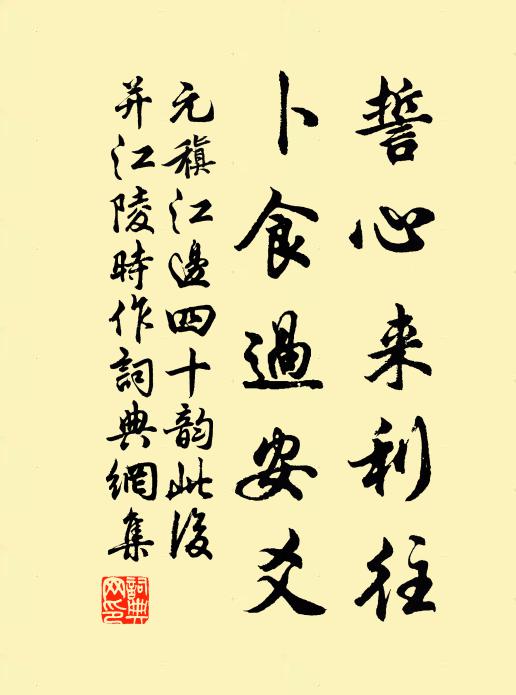 誓心来利往
卜食過安爻
元稹江邊四十韵此後
并江陵時作詞典網集
詞典網印